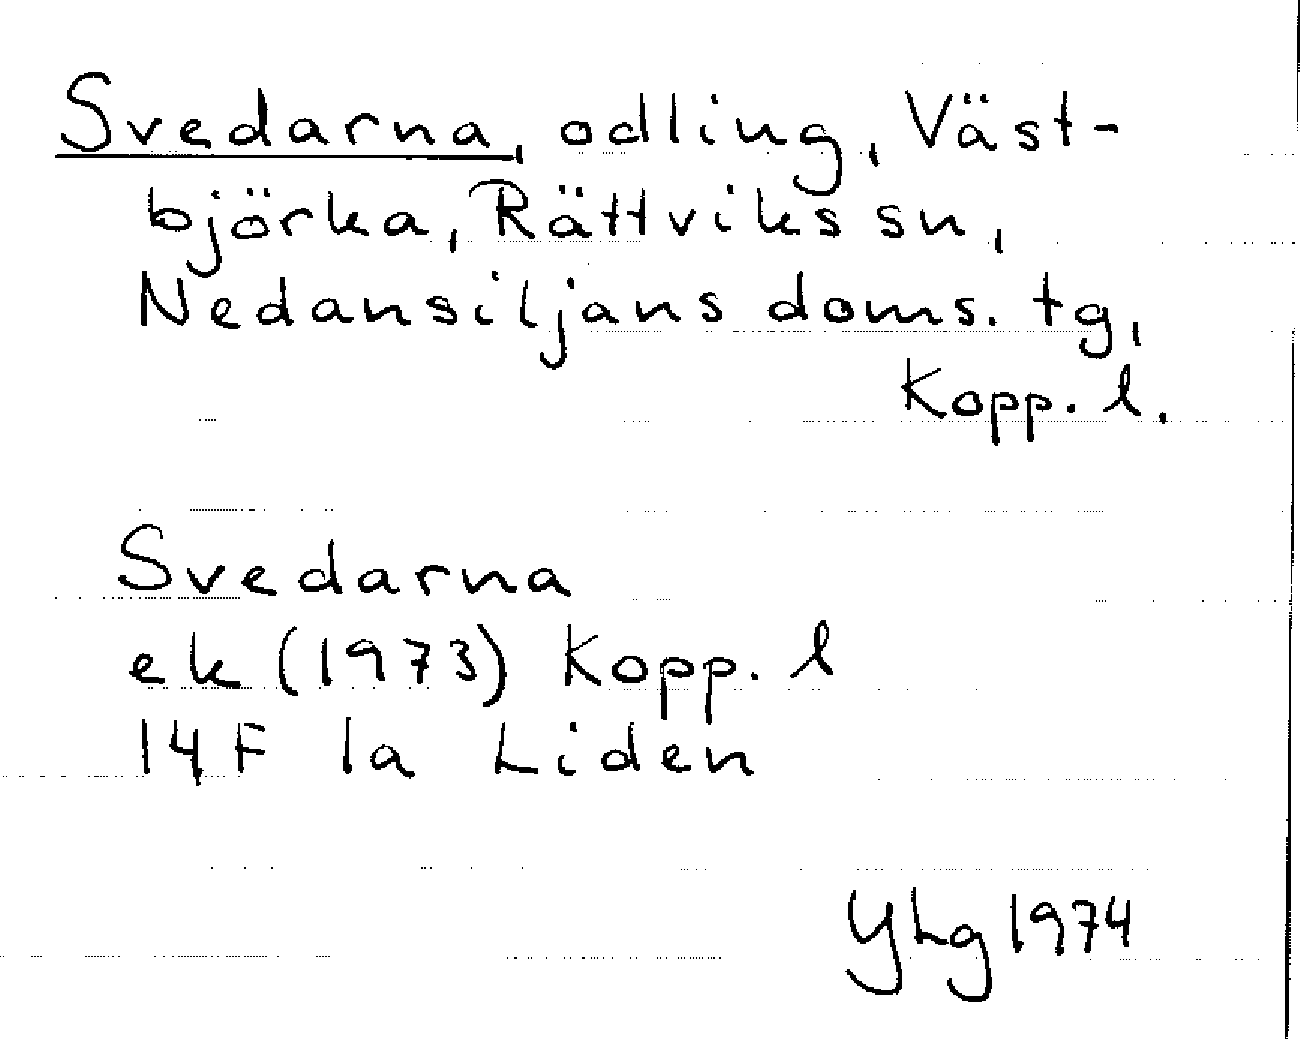 Svedarna, odling, Väst-
björka, Rättviks sn,
Nedansiljans doms. tg,
Kopp. l.
Svedarna
ek (1973) Kopp. l
14F 1a Liden
YLg 1974